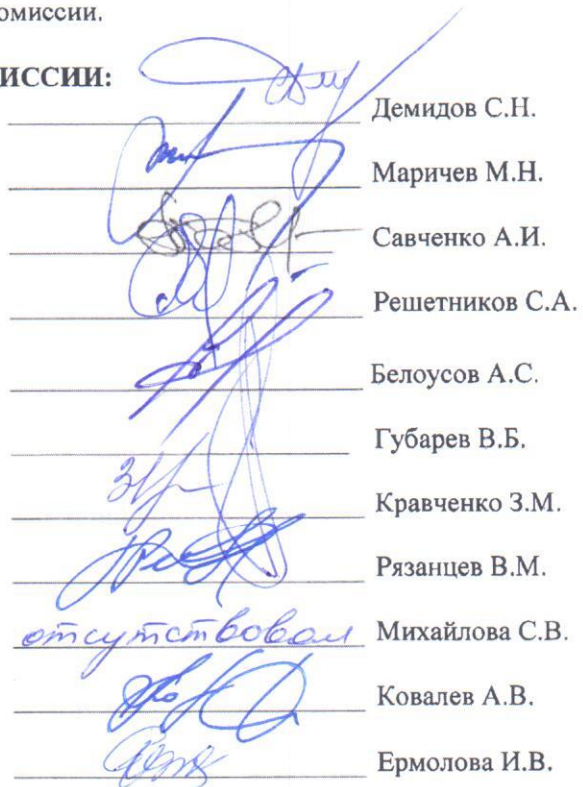 омиссии.
ИССИИ:
Демидов С.Н.
Маричев М.Н.
Савченко А.И.
Решетников С.А.
Белоусов А.С.
Губарев В.Б.
Кравченко З.М.
Рязанцев В.М.
отсутствовал Михайлова С.В.
Ковалев А.В.
Ермолова И.В.